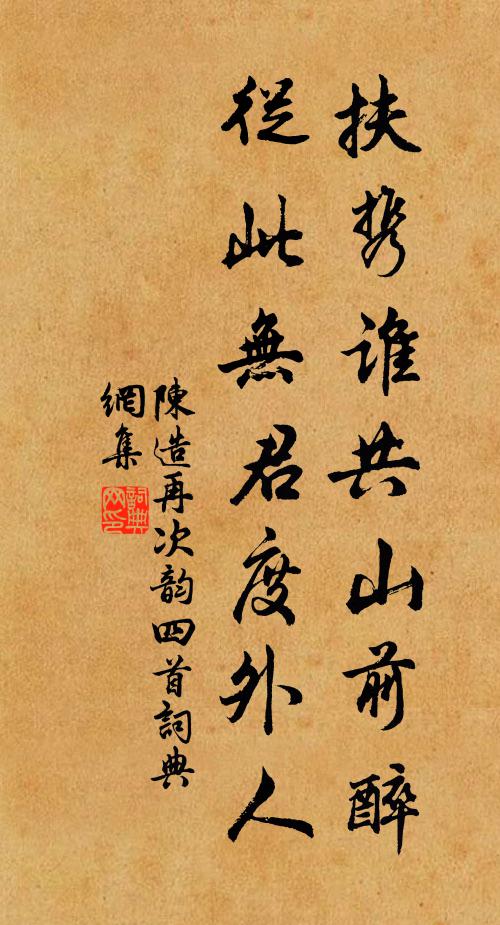 扶携誰共山前醉
從此無君度外人
陳造再次韵四首詞典
網集
詞典
网印